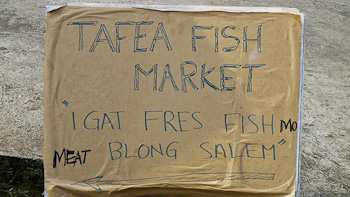 TAFEA FISH
MARKET
"I GAT FRES FISH MO
MEAT BLONG SALEM"